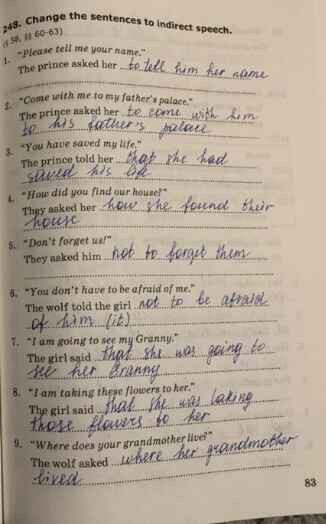 248. Change the sentences to indirect speech.
(§ 58, §§ 60-63)
1. "Please tell me your name."
The prince asked her to tell him her name
2. "Come with me to my father's palace."
The prince asked her to come with him
to his father's palace
3. "You have saved my life."
The prince told her that she had
saved his life
4. "How did you find our house?"
They asked her how she found their
house
5. "Don't forget us!"
They asked him not to forget them
6. "You don't have to be afraid of me."
The wolf told the girl not to be afraid
of him (it)
7. "I am going to see my Granny."
The girl said that she was going to
see her Granny
8. "I am taking these flowers to her."
The girl said that she was taking
those flowers to her
9. "Where does your grandmother live?"
The wolf asked where her grandmother
lived
83